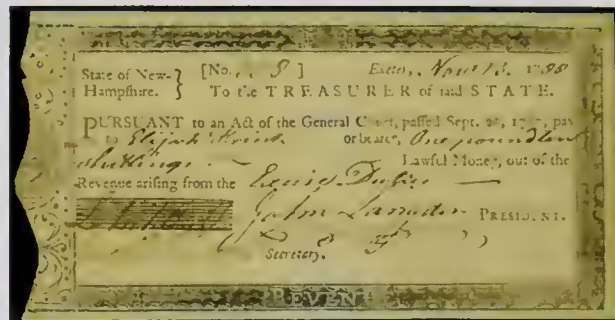 State of New- } [No. 8 ] Exeter, Nov. 13. 1788
Hampſhire. } To the TREASURER of said STATE.
PURSUANT to an Act of the General Court, paſſed Sept. pay
to Elijah or bearer, One pound ten
shillings — Lawful Money, out of the
Revenue ariſing from the Excise Duties —
John Langdon PRESIDENT.
Secretary.
REVEN